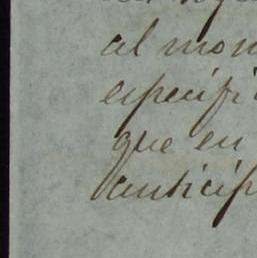 al mon
especifi
que en
anticip